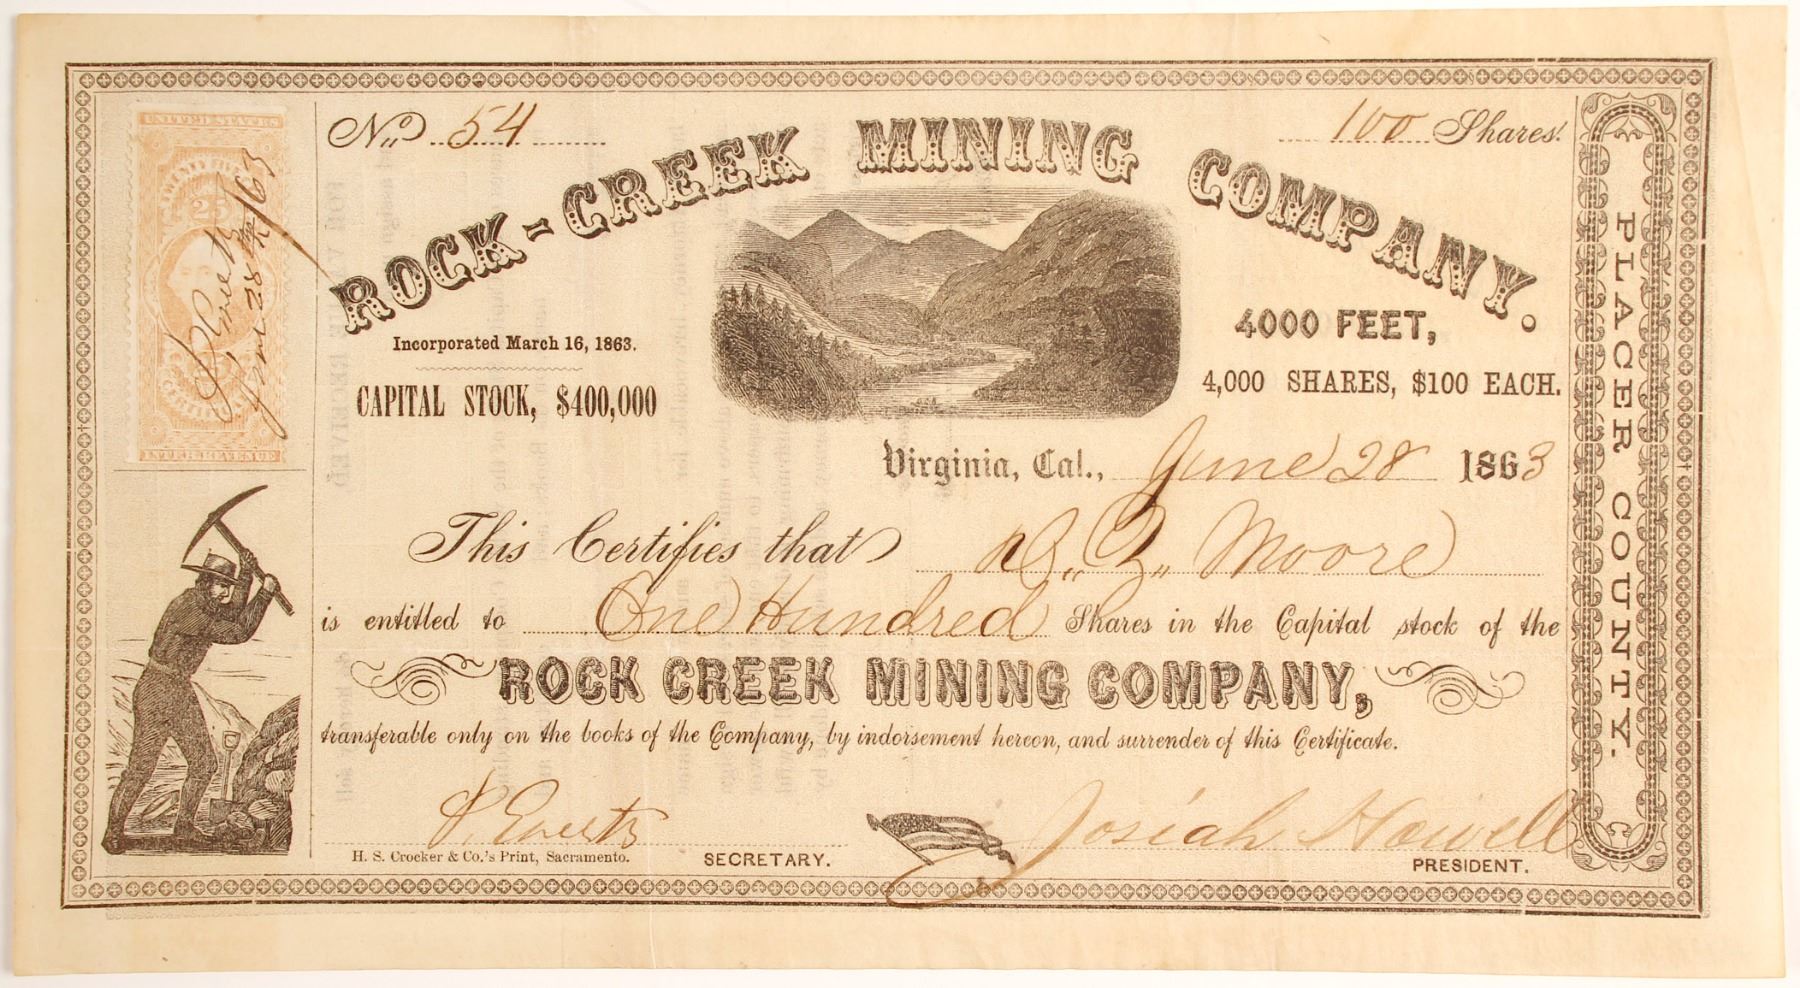 UNITED STATES
TWENTY FIVE
25
S. Everts
June 28th /63
CERTIFICATE
INTER. REVENUE
No. 54
100 Shares.
ROCK-CREEK MINING COMPANY.
Incorporated March 16, 1863.
CAPITAL STOCK, $400,000
4000 FEET,
4,000 SHARES, $100 EACH.
Virginia, Cal., June 28 1863
This Certifies that Moore
is entitled to One Hundred Shares in the Capital stock of the
ROCK CREEK MINING COMPANY,
transferable only on the books of the Company, by indorsement hereon, and surrender of this Certificate.
S. Everts
Josiah Howell
H. S. Crocker & Co.'s Print, Sacramento.
SECRETARY.
PRESIDENT.
PLACER COUNTY.